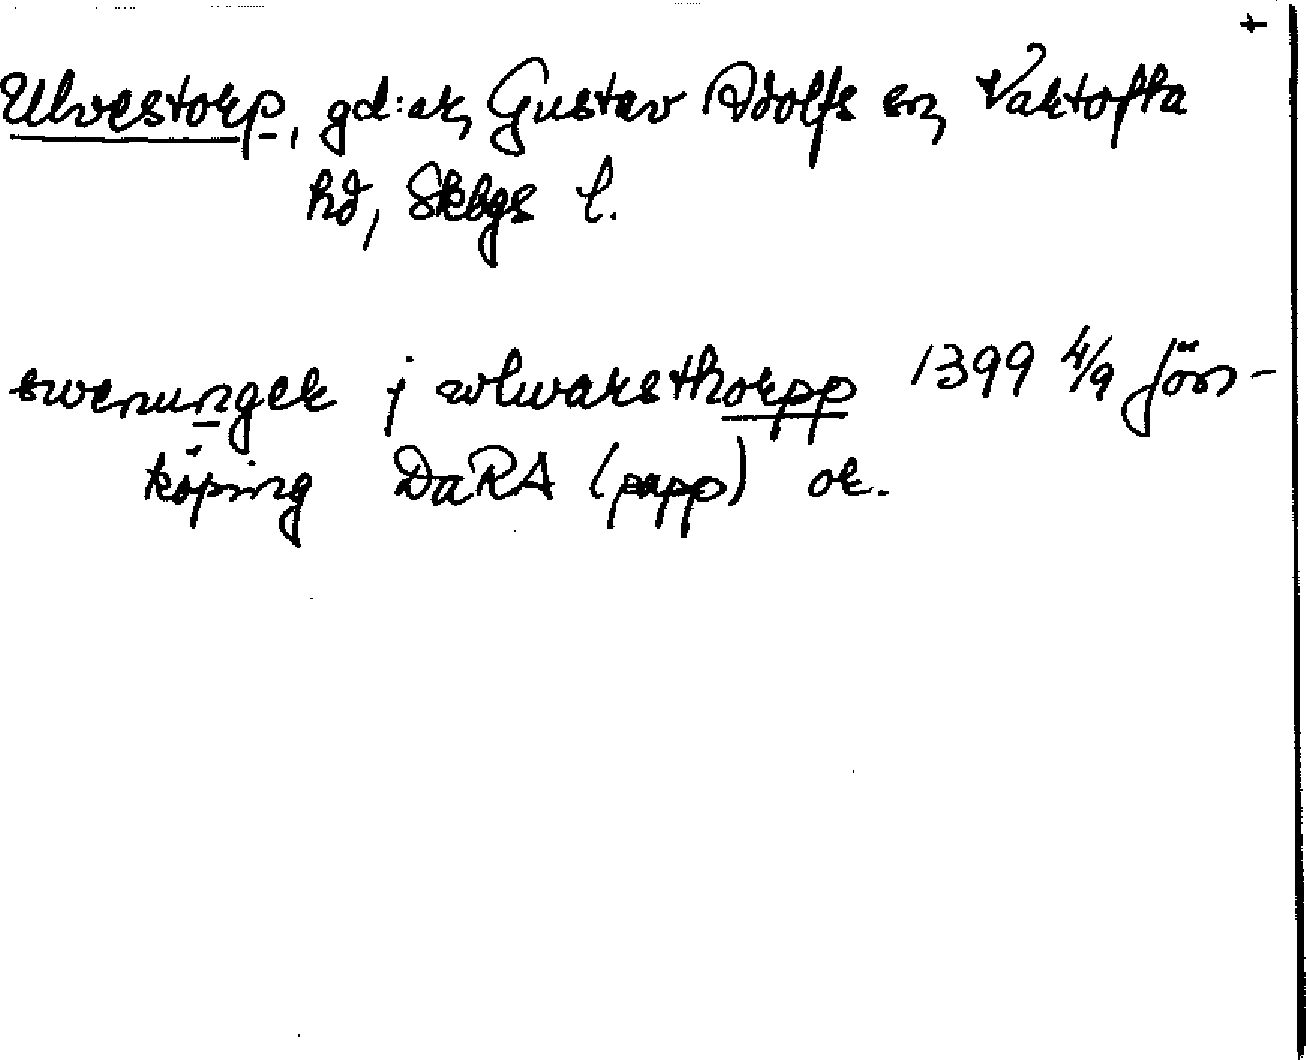 +
Ulvestorp, gd:ar, Gustav Adolfs sn, Vartofta
hd, Skbgs l.
swenunger j wlwarsthorpp 1399 4/9 Jön-
köping DaRA (papp) or.